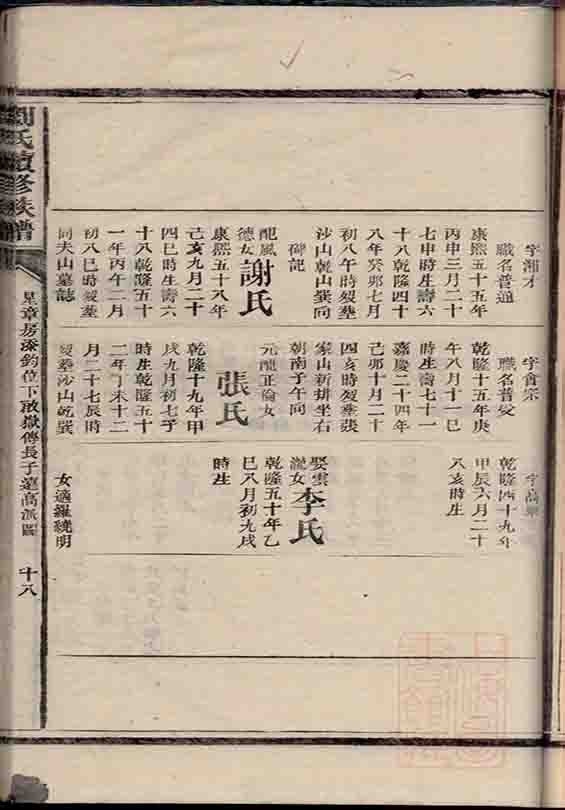 字湘才
職名普通
康熙五十五年
丙申三月二十
七申時生壽六
十八乾隆四十
八年癸卯七月
初八午時歿塟
沙山乾山巽向
碑記
配風
德女
謝氏
康熙五十八年
己亥九月二十
四巳時生壽六
十八乾隆五十
一年丙午二月
初八巳時歿塟
同夫山墓誌
字會宗
職名普受
乾隆十五年庚
午八月十一巳
時生壽七十一
嘉慶二十四年
己卯十月二十
四亥時歿塟張
家山新排坐右
朝南子午向
元龍正倫女
張氏
乾隆十九年甲
戌九月初七子
時生乾隆五十
二年丁未十二
月二十七辰時
歿塟沙山乾巽
字高
乾隆四十九年
甲辰六月二十
八亥時生
娶雲
龍女
李氏
乾隆五十年乙
巳八月初九戌
時生
女適羅繞明
劉氏續修族譜
星章房添釣位下敢嶽傳長子遠高派圖
十八